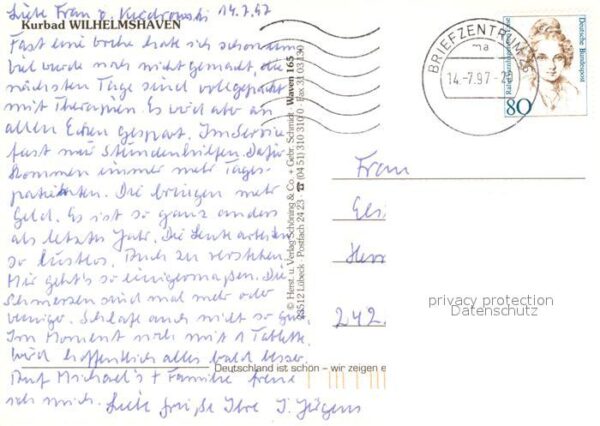 Liebe Frau v. Kuedrowski 14.7.97
Kurbad WILHELMSHAVEN
Fast eine Woche habe ich schon um
viel wurde noch nicht gemacht, die
nächsten Tage sind vollgepackt
mit Therapien. Es wird aber an
allen Ecken gespart. Im Service
fast nur Stundenhilfen. Dafür
kommen immer mehr Tages-
patienten. Die bringen mehr
Geld. Es ist so ganz anders
als letztes Jahr. Die Leute arbeiten
so lustlos. Auch zu verstehen.
Mir geht's so einigermaßen. Die
Schmerzen sind mal mehr oder
weniger. Schlafe auch nicht so gut.
Im Moment noch mit 1 Tablette.
Wird hoffentlich alles bald besser.
Auf Michael's + Familie freue
ich mich. Liebe Grüße Ihre J. Jürgens
© Herst. u. Verlag Schöning & Co. + Gebr. Schmidt Waven 165
23512 Lübeck · Postfach 24 23 · ☎ (04 51) 310 310 · Fax 31 03 130
Deutschland ist schön – wir zeigen e
BRIEFZENTRUM 26
ma
14.-7.97-20
Deutsche Bundespost
80
Frau
Herr
242
privacy protection
Datenschutz